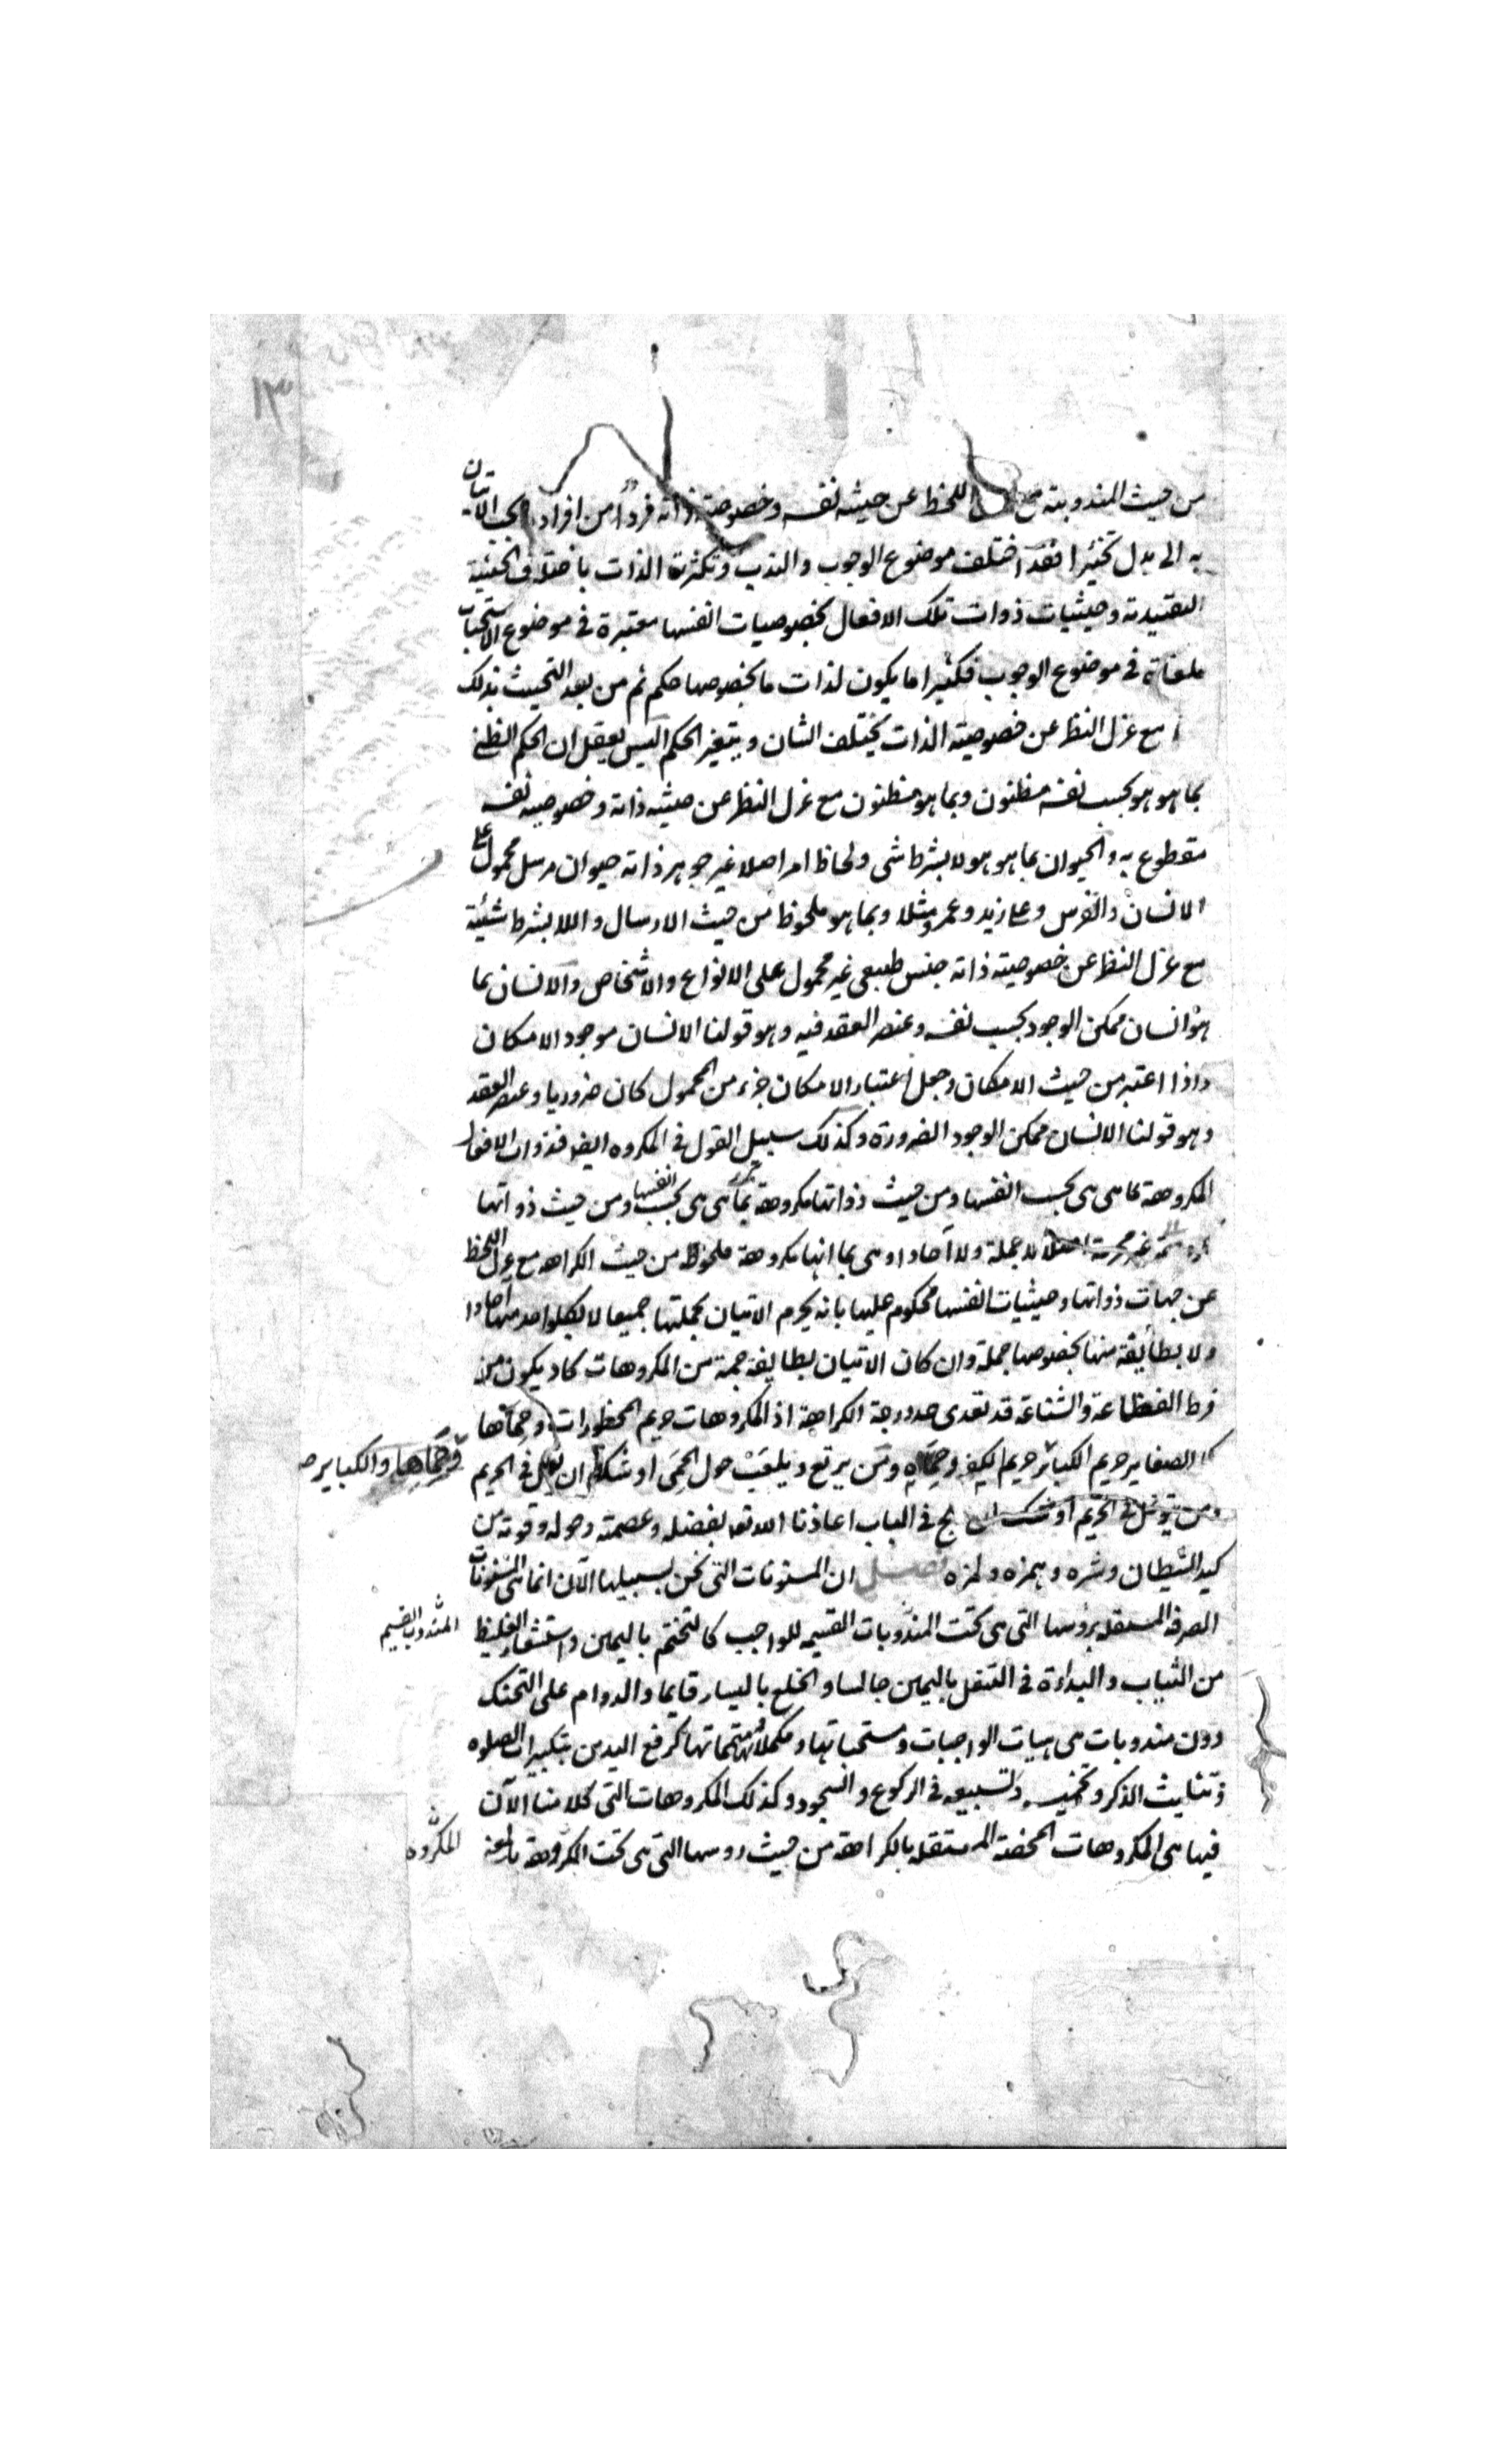 ١٣
من حيث المندوبية مع اللحظ عن حيثه نفسه وخصوصية ذاته فردا من افراد الاتيان
به الى بدل تخييرا فقد اختلف موضوع الوجوب والندب وتكثرت الذات باختلاف الحيثية
التقييدية وحيثيات ذوات تلك الافعال بخصوصيات انفسها معتبرة في موضوع الاستحباب
ملغاة في موضوع الوجوب فكثيرا ما يكون لذات ما بخصوصها حكم ثم من بعد التحيث بذلك
مع عزل النظر عن خصوصية الذات يختلف الشان ويتغير الحكم اليس يعقل ان الحكم الظني
بما هو هو بحسب نفسه مظنون وبما هو مظنون مع عزل النظر عن حيثيه ذاته وخصوصيه نفسه
مقطوع به والحيوان بما هو هو لا بشرط شي ولحاظ امر اصلا غير جوهر ذاته حيوان مرسل محمول على
الانسان والفرس وعلى زيد وعمرو مثلا وبما هو ملحوظ من حيث الارسال واللا بشرط شيئية
مع عزل النظر عن خصوصية ذاته جنس طبيعي غير محمول على الانواع والاشخاص والانسان بما
هو انسان ممكن الوجود بحسب نفسه وعنصر العقد فيه وهو قولنا الانسان موجود الامكان
واذا اعتبر من حيث الامكان وجعل اعتبار الامكان جزء من المحمول كان ضروريا وعنصر العقد
وهو قولنا الانسان ممكن الوجود الضرورة وكذلك سبيل القول في المكروه ايضا فذوات الافعال
المكروهة بما هي هي بحسب انفسها ومن حيث ذواتها مكروهة بما هي هي بحسب انفسها ومن حيث ذواتها
غير محرمة اصلا لا جملة ولا آحادا وهي بما انها مكروهة ملحوظة من حيث الكراهه مع عزل اللحظ
عن جهات ذواتها وحيثيات انفسها محكوم عليها بانه يحرم الاتيان بجملتها جميعا لا بكل واحد منها آحادا
ولا بطائفة منها بخصوصها جملة وان كان الاتيان بطايفة جمة من المكروهات كاد يكون من
فرط الفظاعة والشناعة قد تعدى حد درجة الكراهة اذ المكروهات حريم المحظورات وحماها
كما الصغاير حريم الكبائر حريم الكفر وحماه ومن يرتع ويلعب حول الحمى اوشك ان في الحريم
وحماها والكباير
ومن يتوغل في الحريم اوشك ان يلج في الباب اعاذنا الله تعالى بفضله وعصمته وحوله وقوته من
كيد الشيطان وشره وهمزه ولمزه فصل ان المسنونات التي نحن بسبيلها الآن انما هي المسنونات
الصرفة المستقله برؤسها التي هي تحت المندوبات القسيمه للواجب كالتختم باليمين واستشعار الغليظ
المندوب القسيم
من الثياب والبداءة في التنعل باليمين جالسا والخلع باليسار قايما والدوام على التحنك
دون مندوبات هي هيات الواجبات ومستحباتها ومكملاتها ومتمماتها كرفع اليدين بتكبيرات الصلوه
وتثليث الذكر وتخميسه وتسبيعه في الركوع والسجود وكذلك المكروهات التي كلامنا الآن
فيها هي المكروهات المحضة المستقله بالكراهة من حيث روسها التي هي تحت المكروهة
المكروه